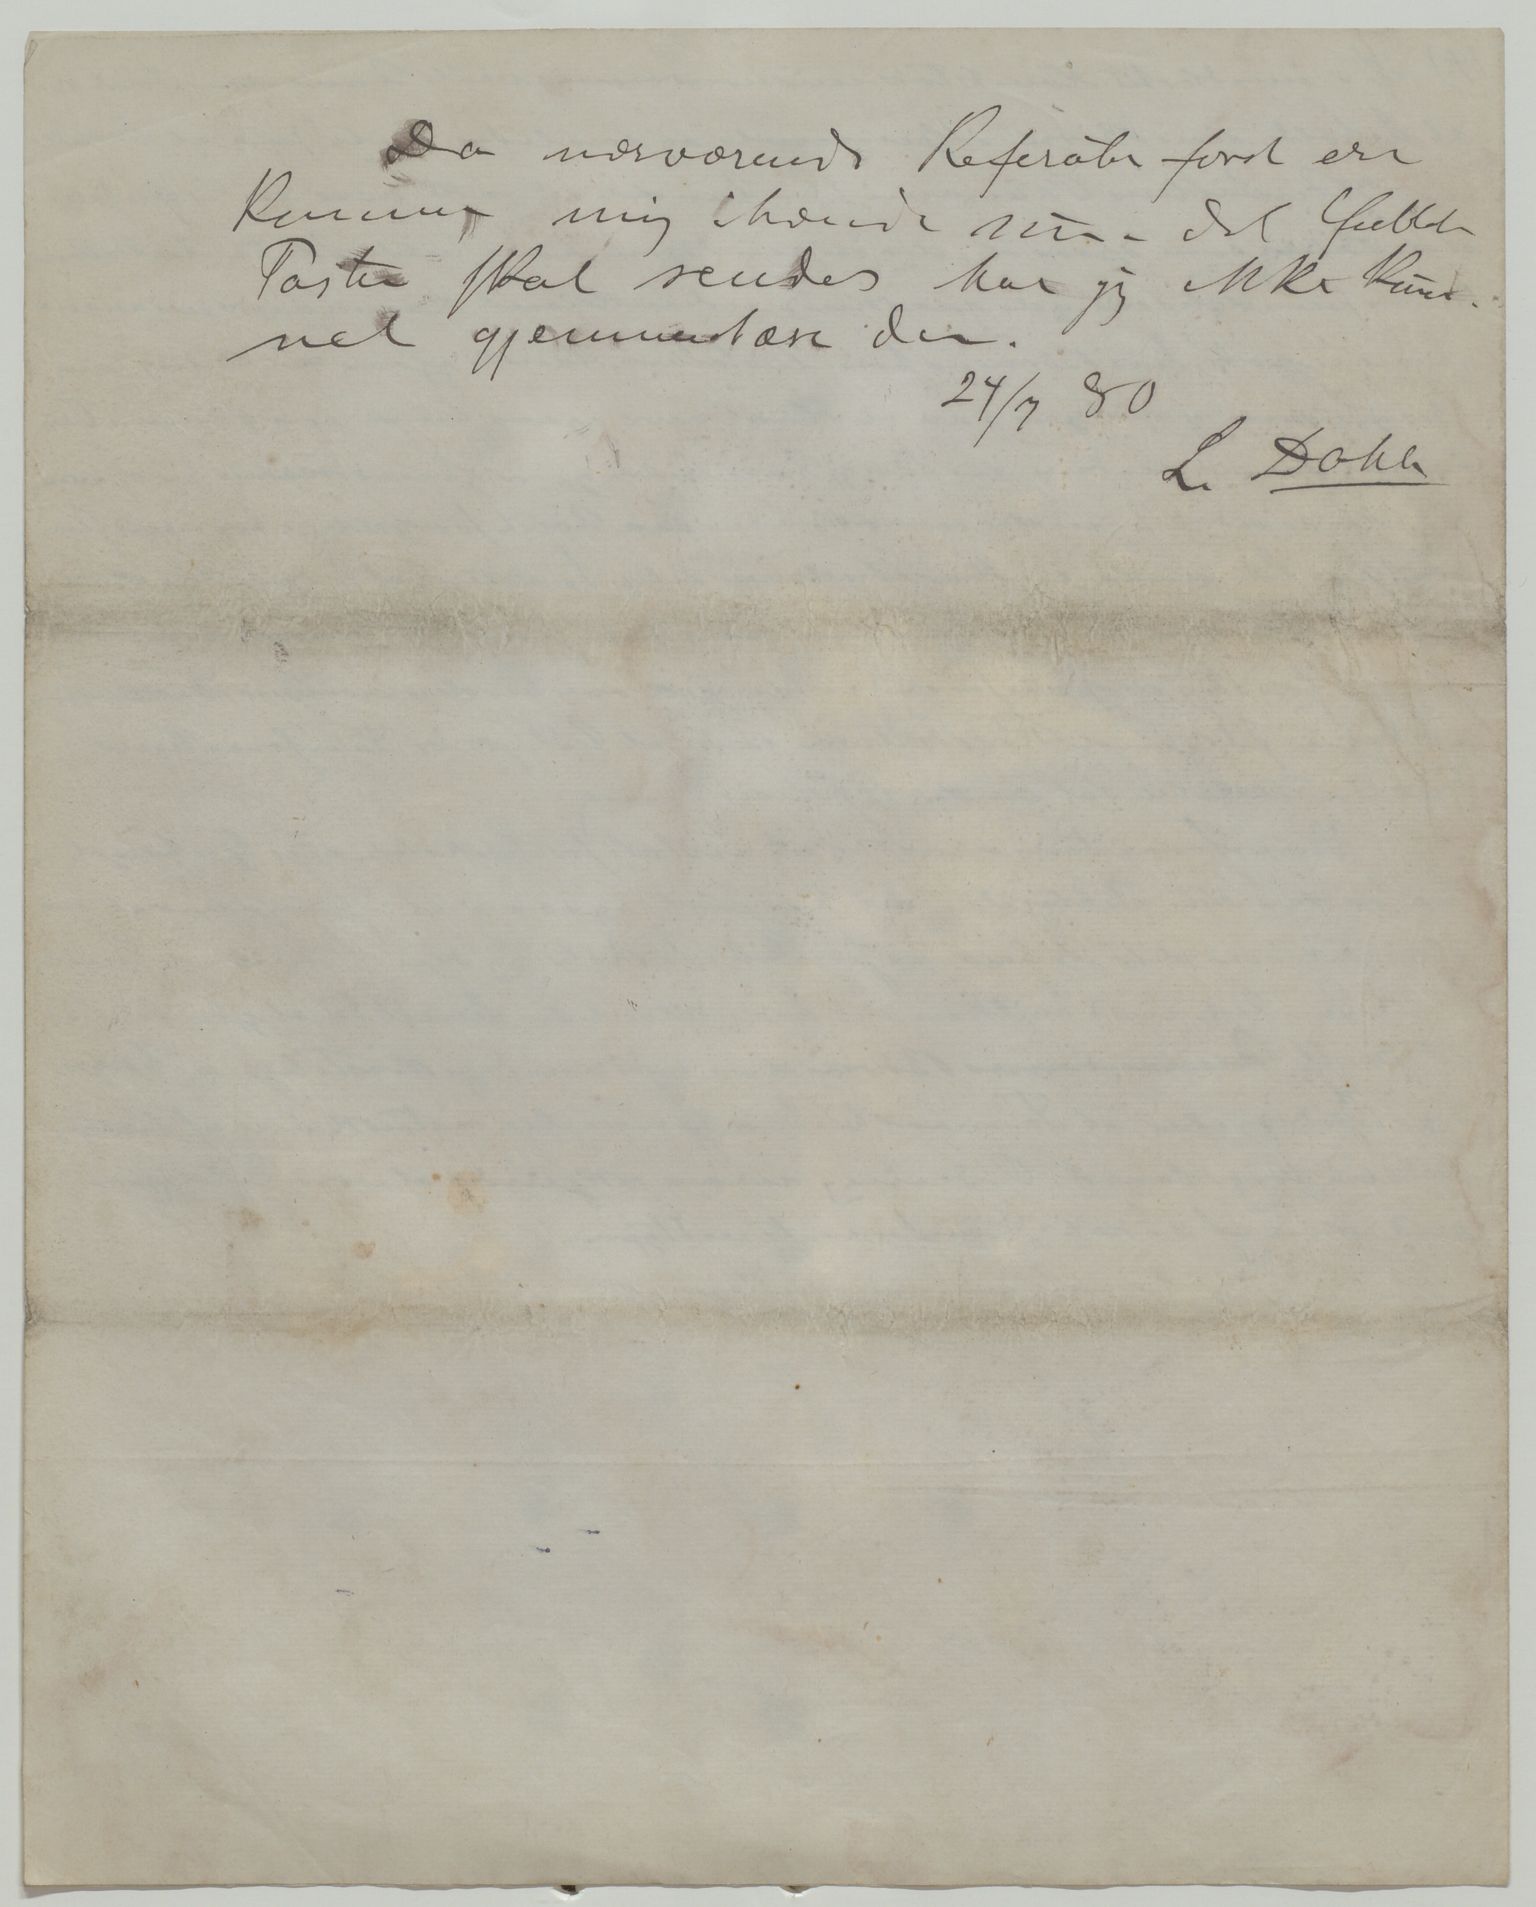 Da nærværende Referater først ere
kommen mig ihænde nu – det
skal sendes har jeg ikke kun-
net gjennemlæse den.
24/7 80
L. Dahle